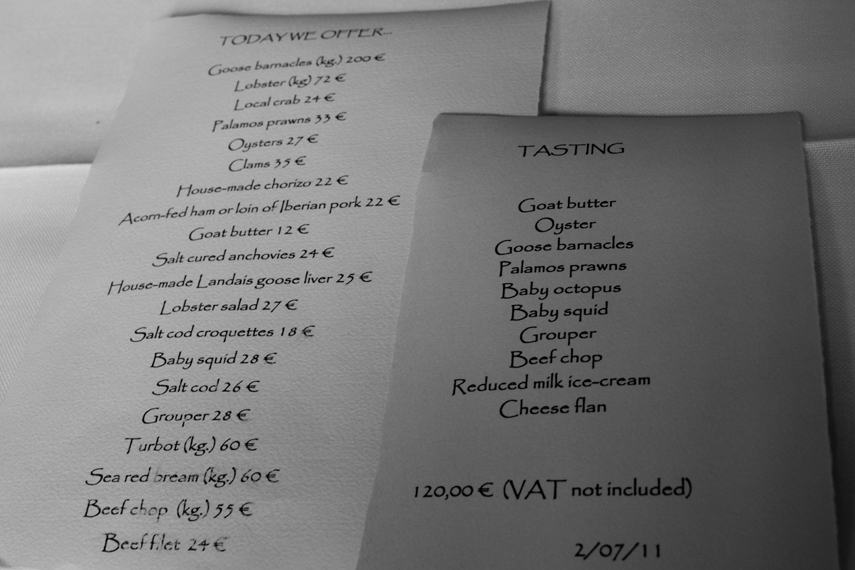 TODAY WE OFFER...
Goose barnacles (kg.) 200 €
Lobster (kg) 72 €
Local crab 24 €
Palamos prawns 33 €
Oysters 27 €
Clams 35 €
House-made chorizo 22 €
Acorn-fed ham or loin of Iberian pork 22 €
Goat butter 12 €
Salt cured anchovies 24 €
House-made Landais goose liver 25 €
Lobster salad 27 €
Salt cod croquettes 18 €
Baby squid 28 €
Salt cod 26 €
Grouper 28 €
Turbot (kg.) 60 €
Sea red bream (kg.) 60 €
Beef chop (kg.) 55 €
Beef filet 24 €
TASTING
Goat butter
Oyster
Goose barnacles
Palamos prawns
Baby octopus
Baby squid
Grouper
Beef chop
Reduced milk ice-cream
Cheese flan
120,00 € (VAT not included)
2/07/11